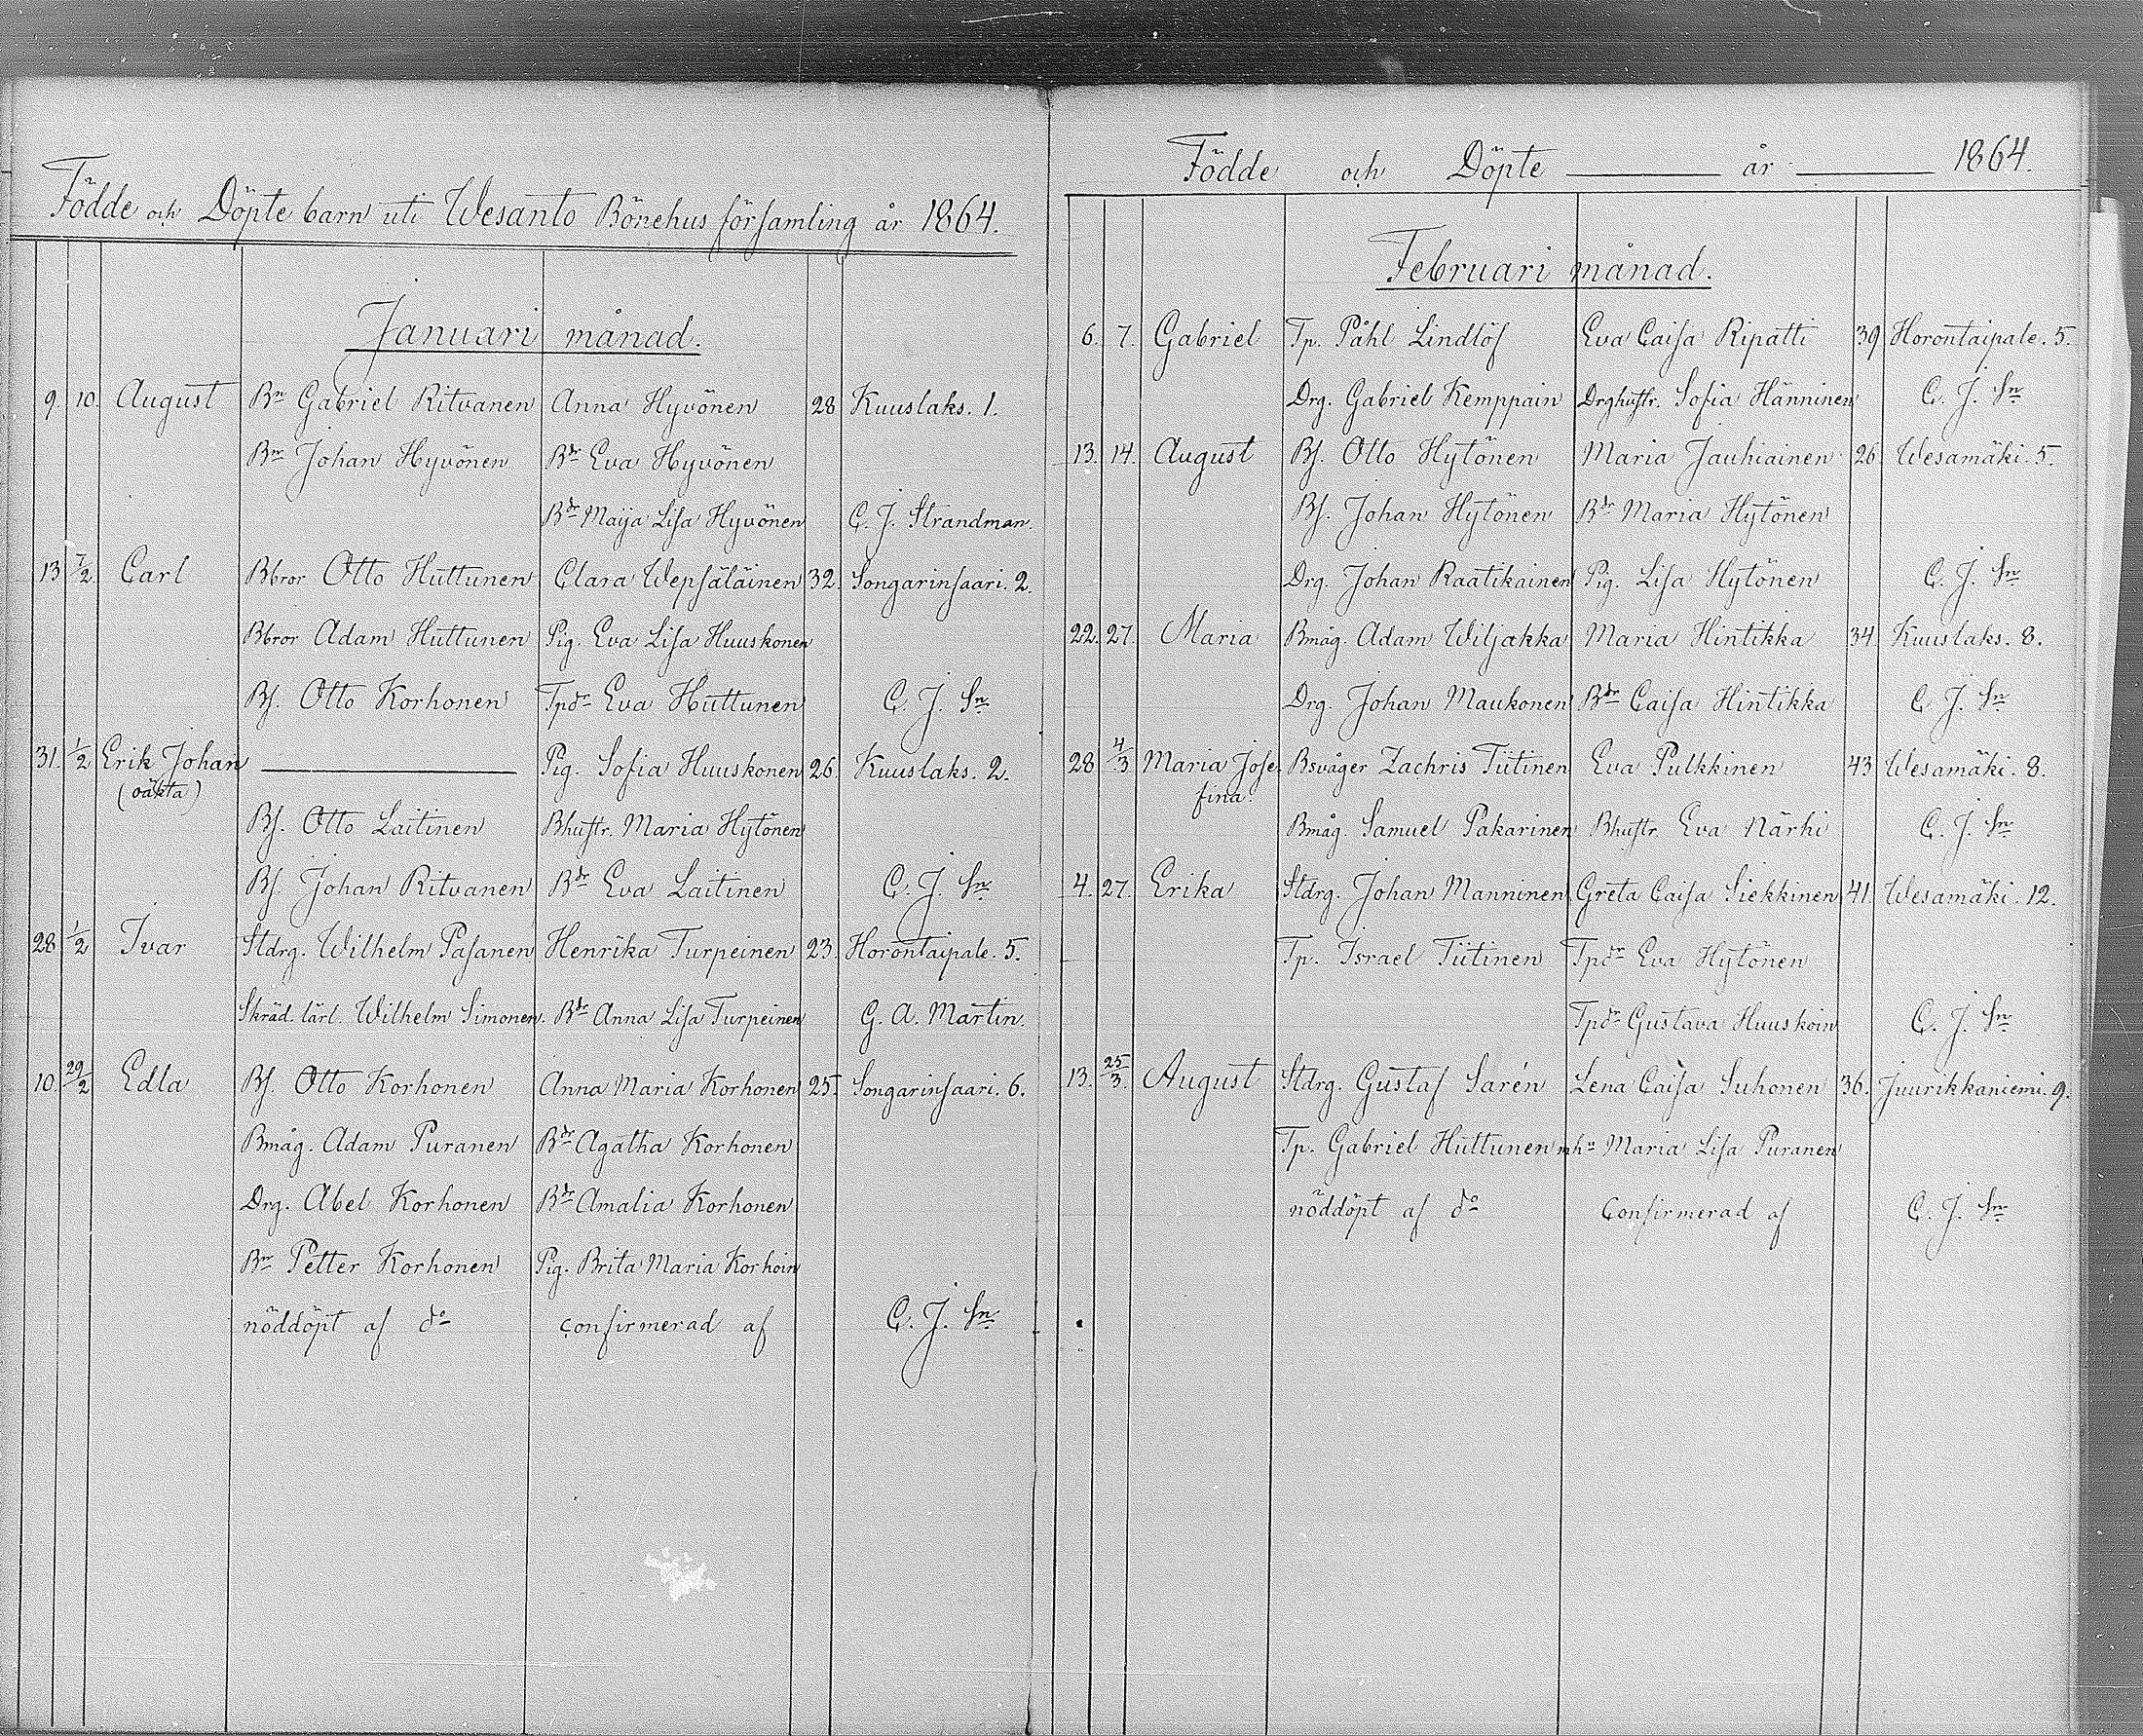 Födde och Döpte barn uti Wesanto Bönehus församling år 1864.
Januari månad.
9. 10. August Bn Gabriel Ritvanen Anna Hyvönen 28 Kuuslaks. 1.
Bn Johan Hyvönen Bdr Eva Hyvönen
Bdr Maija Lisa Hyvönen C. J. Strandman.
13 7/2 Carl Bbror Otto Huttunen Clara Wepsäläinen 32. Songarinsaari. 2.
Bbror Adam Huttunen Pig. Eva Lisa Huuskonen
Bs. Otto Korhonen Tpdr Eva Huttunen C. J. Sn
31. 1/2 Erik Johan ——— Pig. Sofia Huuskonen 26. Kuuslaks. 2.
(oäkta)
Bs. Otto Laitinen Bhustr. Maria Hytönen
Bs. Johan Ritvanen Bdr Eva Laitinen C. J. Sn
28 1/2 Ivar Stdrg. Wilhelm Pasanen Henrika Turpeinen 23. Horontaipale. 5.
Skräd. lärl. Wilhelm Simonen. Bdr Anna Lisa Turpeinen G. A. Martin.
10. 29/2 Edla Bs. Otto Korhonen Anna Maria Korhonen 25. Songarinsaari. 6.
Bmåg. Adam Puranen Bdr Agatha Korhonen
Drg. Abel Korhonen Bdr Amalia Korhonen
Bn Petter Korhonen Pig. Brita Maria Korhoin
nöddöpt af do confirmerad af C. J. Sn
Födde och Döpte ——— år ——— 1864.
Februari månad.
6. 7. Gabriel Tp. Påhl Lindlöf Eva Caisa Ripatti 39 Horontaipale. 5.
Drg. Gabriel Kemppain Drghustr. Sofia Hänninen C. J. Sn
13. 14. August Bs. Otto Hytönen Maria Jauhiainen 26. Wesamäki. 5.
Bs. Johan Hytönen Bdr Maria Hytönen
Drg. Johan Raatikainen Pig. Lisa Hytönen C. J. Sn
22. 27. Maria Bmåg. Adam Wiljakka Maria Hintikka 34 Kuuslaks. 8.
Drg. Johan Maukonen Bdr Caisa Hintikka C. J. Sn
28 4/3 Maria Jose- Bsvåger Zachris Tiitinen Eva Pulkkinen 43 Wesamäki. 8.
fina.
Bmåg. Samuel Pakarinen Bhustr. Eva Närhi C. J. Sn
4. 27. Erika Stdrg. Johan Manninen Greta Caisa Siekkinen 41. Wesamäki. 12.
Tp. Israel Tiitinen Tpdr Eva Hytönen
Tpdr Gustava Huuskoin C. J. Sn
13. 25/3. August Stdrg. Gustaf Sarén Lena Caisa Suhonen 36. Juurikkaniemi. 9.
Tp. Gabriel Huttunen mhu Maria Lisa Puranen
nöddöpt af do Confirmerad af C. J. Sn